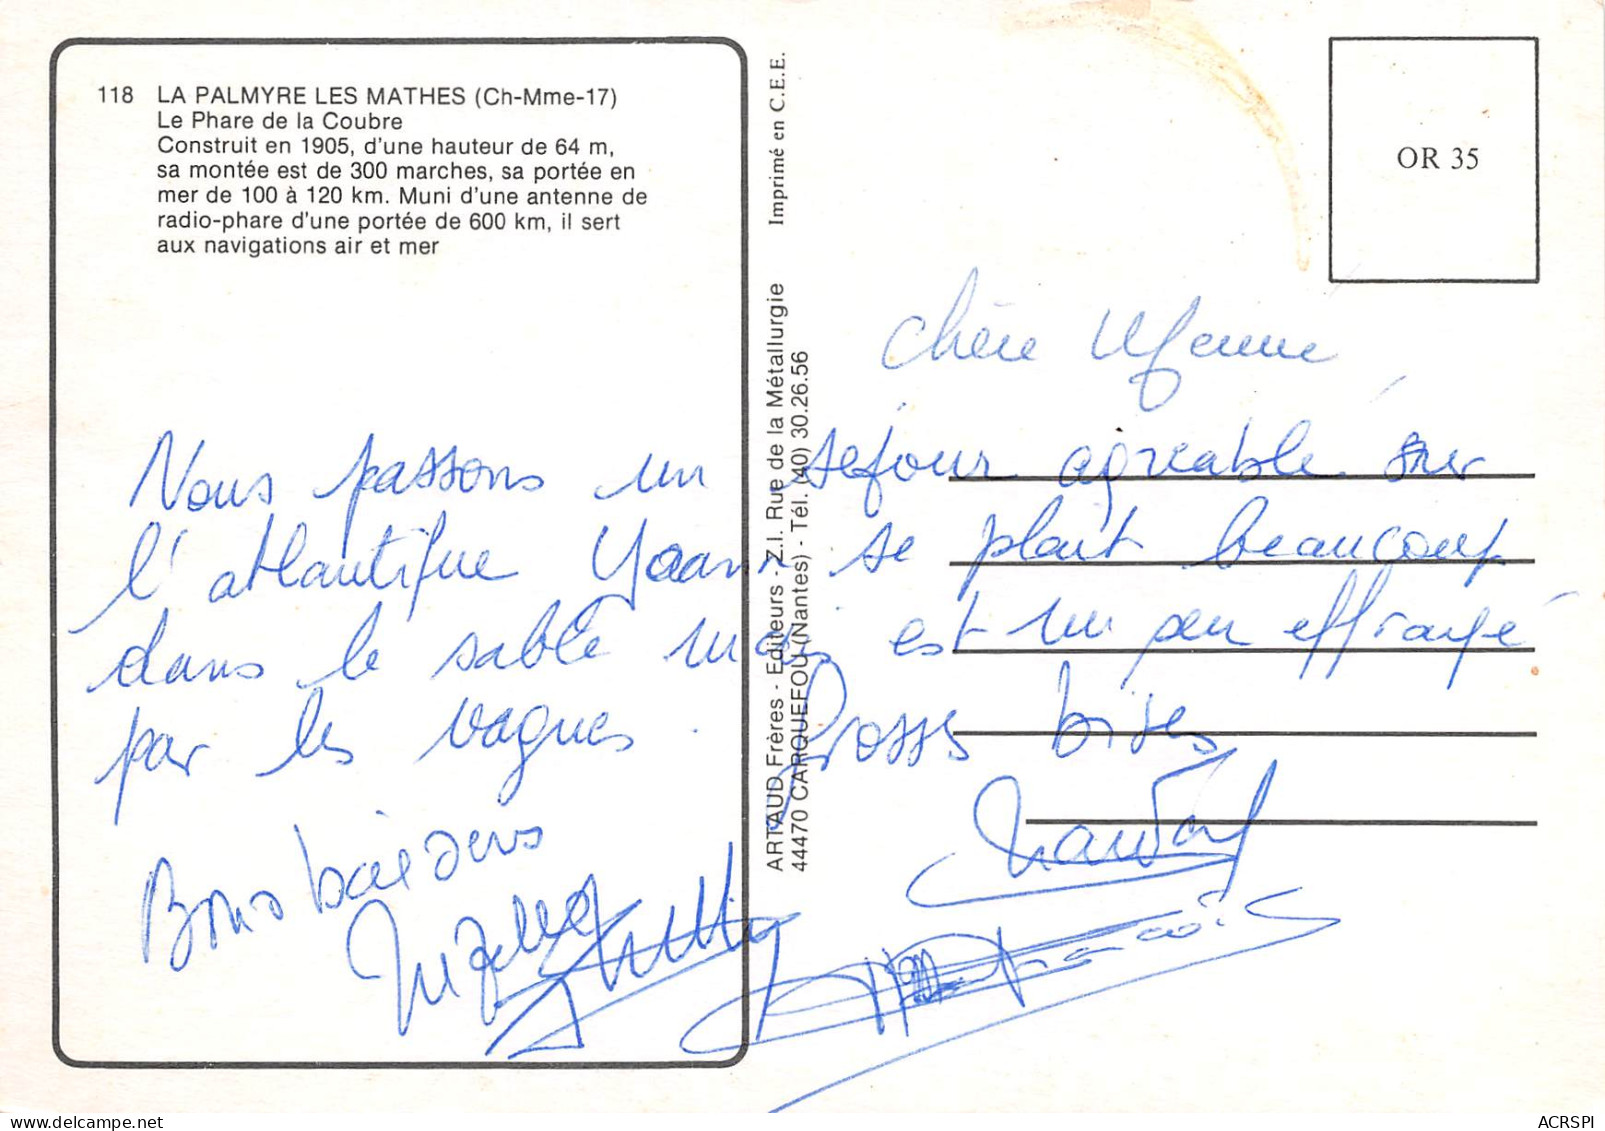 118 LA PALMYRE LES MATHES (Ch-Mme-17)
Le Phare de la Coubre
Construit en 1905, d'une hauteur de 64 m,
sa montée est de 300 marches, sa portée en
mer de 100 à 120 km. Muni d'une antenne de
radio-phare d'une portée de 600 km, il sert
aux navigations air et mer
Imprimé en C.E.E.
ARTAUD Frères - Editeurs - Z.I. Rue de la Métallurgie
44470 CARQUEFOU (Nantes) - Tél. (40) 30.26.56
OR 35
Chère
Nous passons un séjour agréable sur
l'atlantique Yoann se plait beaucoup
dans le sable mais est un peu effrayé
par les vagues. Grosses bises
Bons baisers
François
ACRSPI